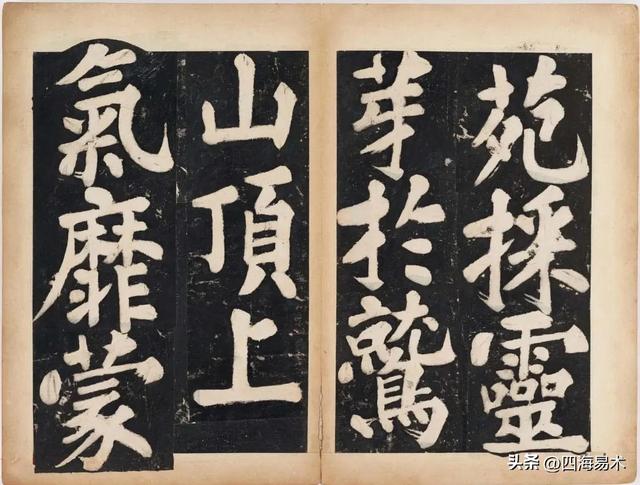 苑採靈
華於鷲
山頂上
氣靡蒙
头条 @四海易木